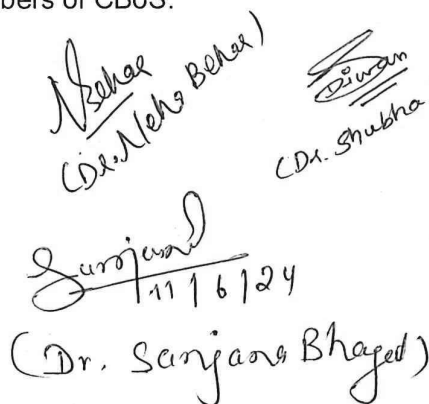 bers of CBoS.
NBehar
(Dr. Neha Behar)
Diwan
(Dr. Shubha
Sanjana
11/6/24
(Dr. Sanjana Bhagat)